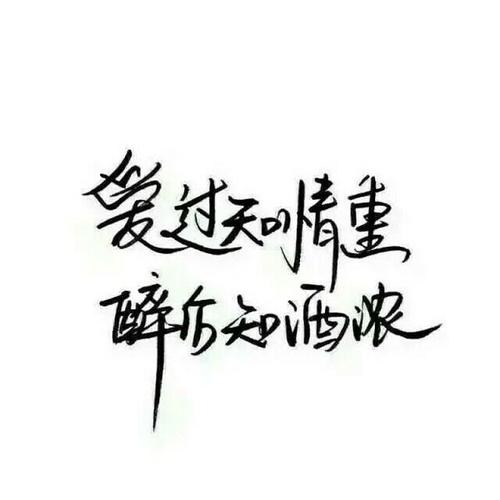 爱过知情重
醉方知酒浓